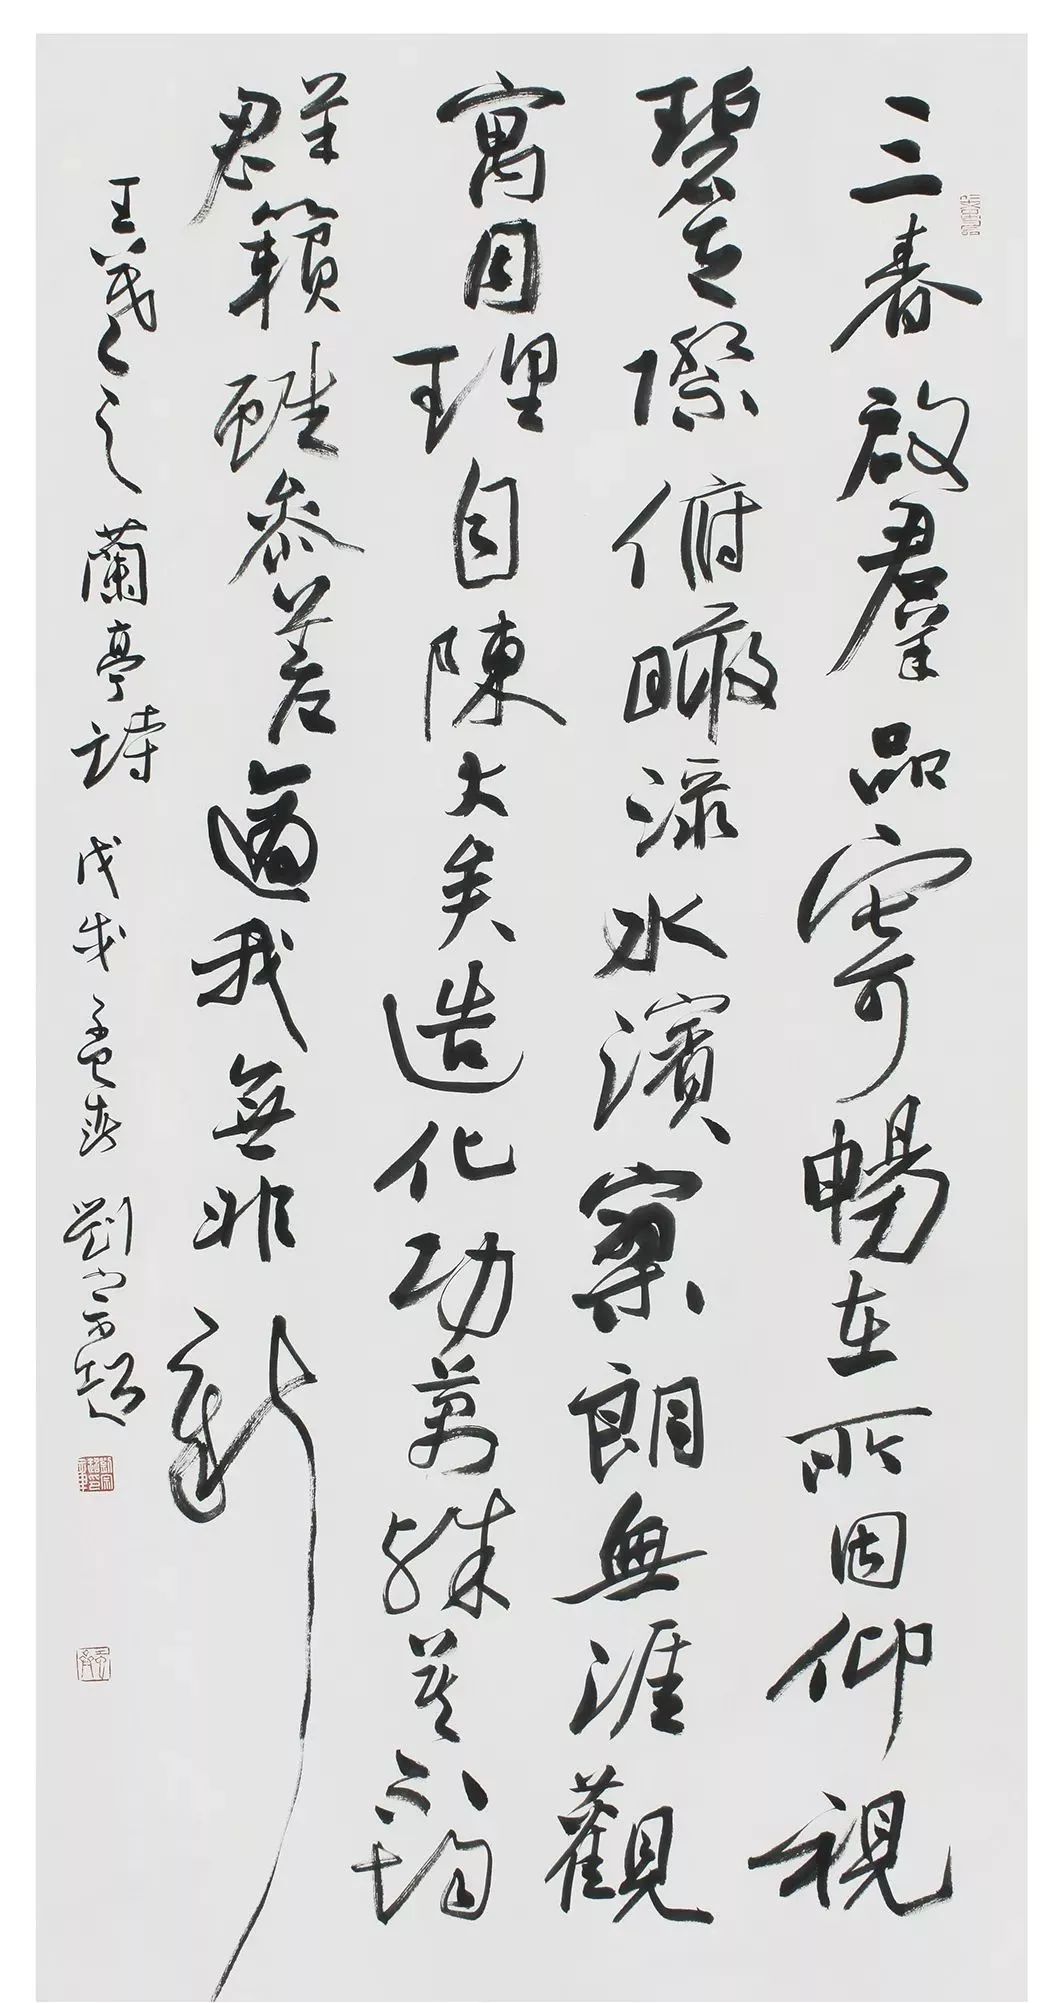 三春啟羣品寄暢在所因仰視
碧天際俯瞰淥水濱寥朗無涯觀
寓目理自陳大矣造化功萬殊莫不均
群籟雖參差適我無非新
王羲之蘭亭詩 戊戌孟春 劉宗超